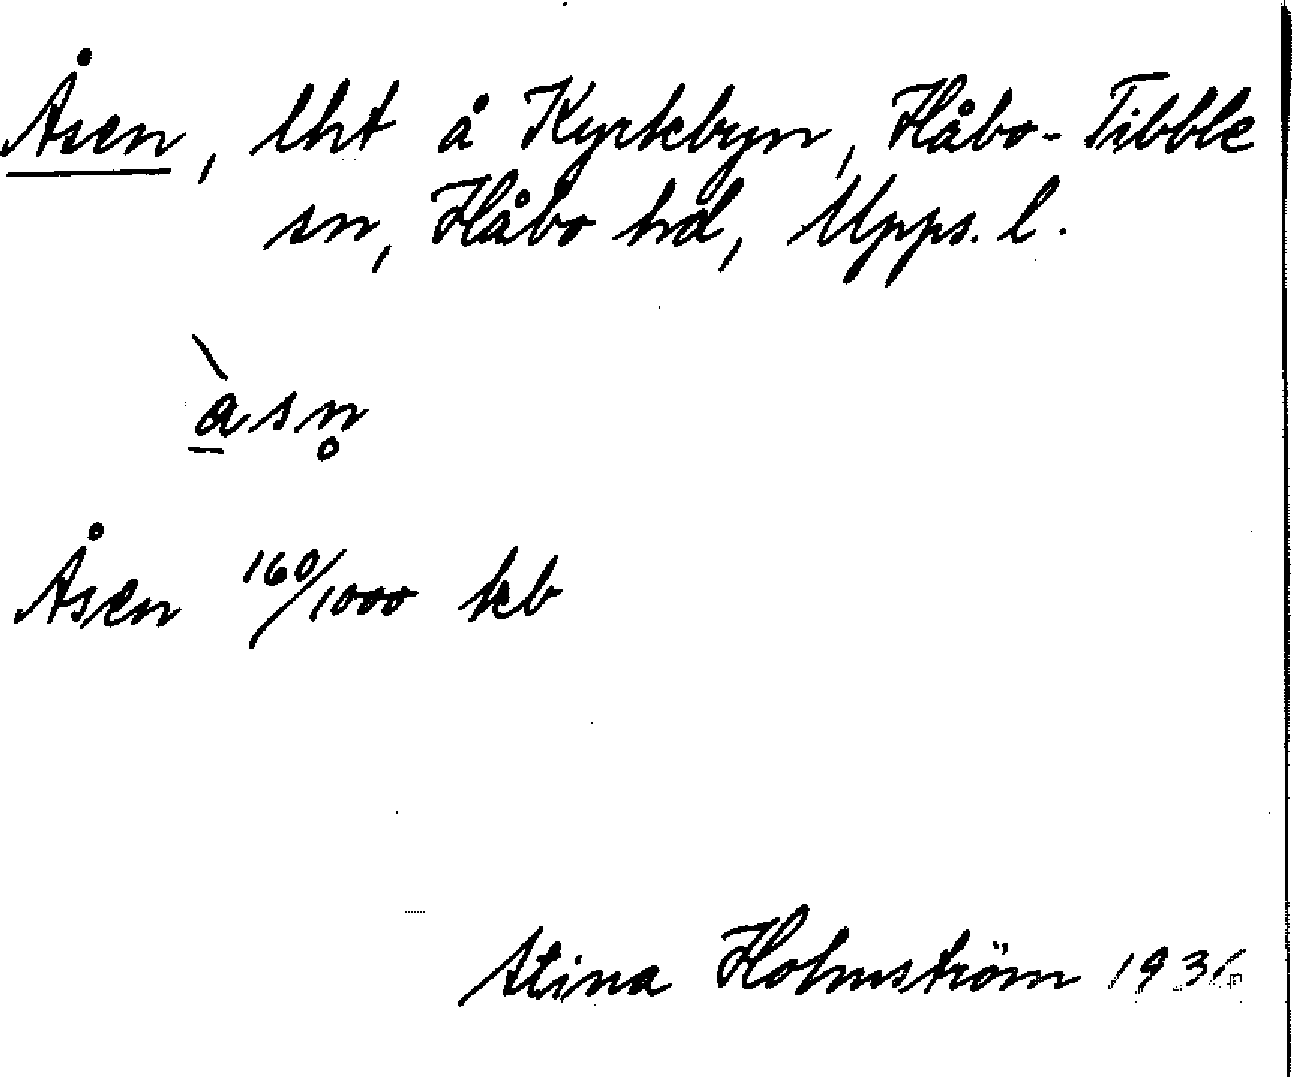 Åsen, lht å Kyrkbyn, Håbo-Tibble
sn, Håbo hd, Upps. l.
àsn̥
Åsen 160/1000 kb
Stina Holmström 1936